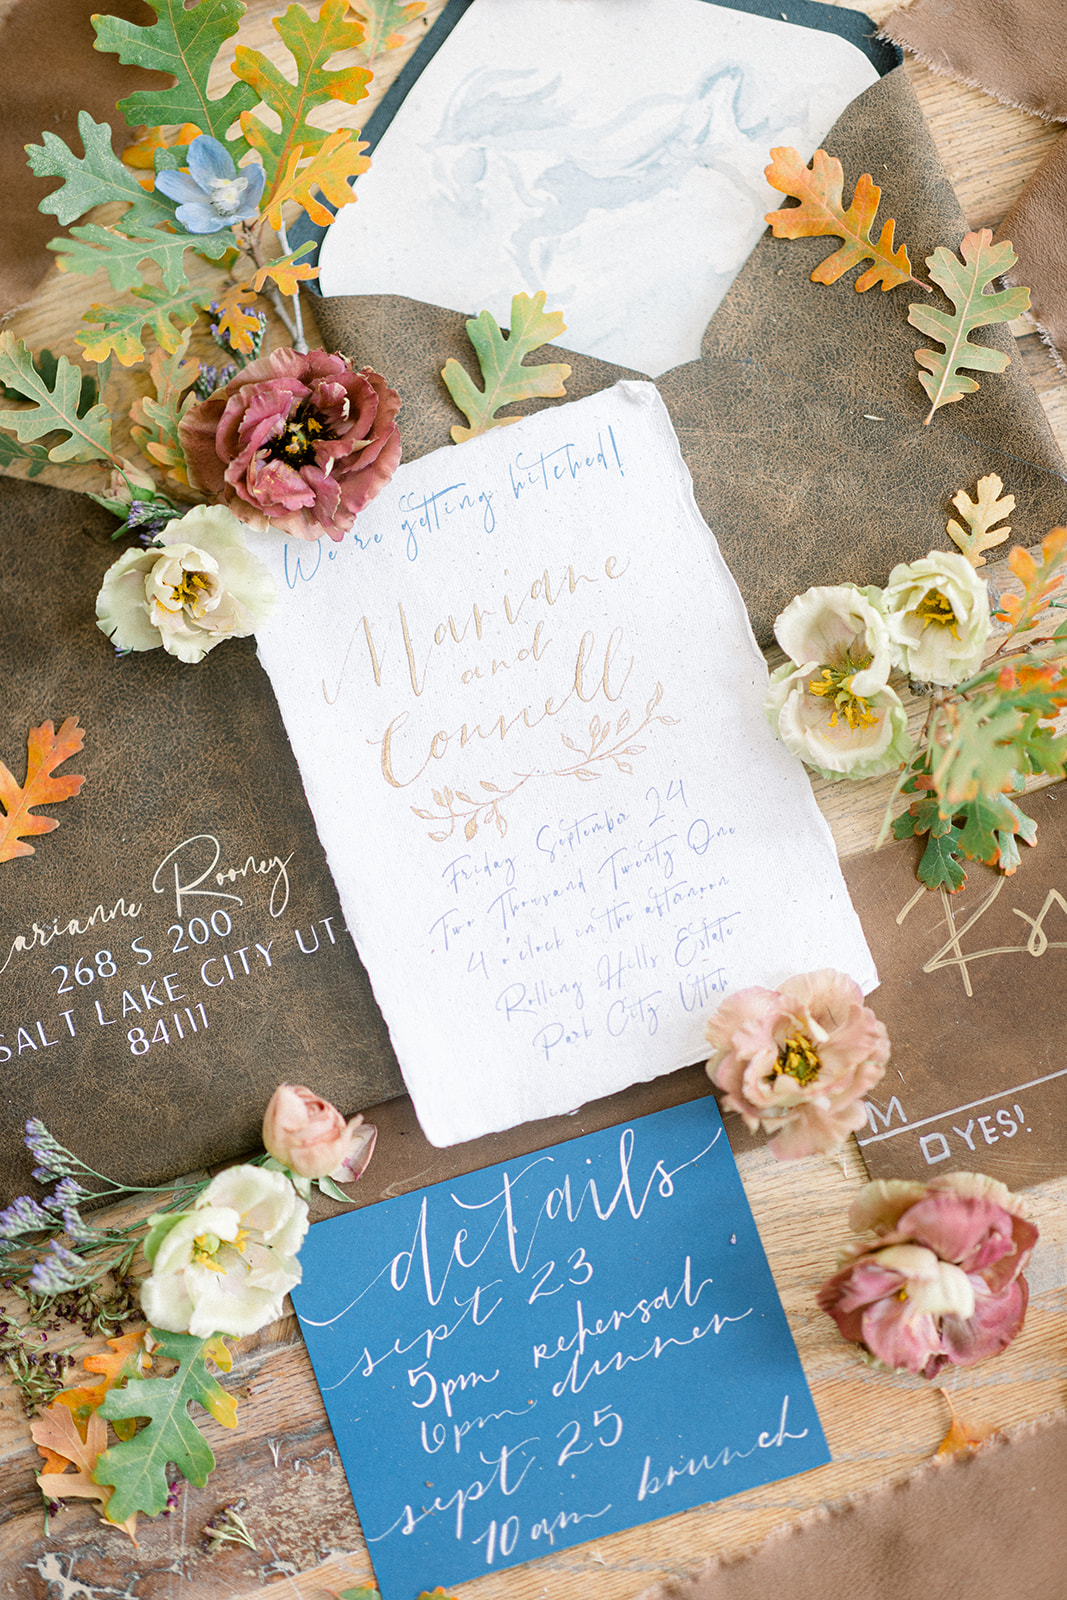 We're getting hitched!
Mariane
and
Connell
Friday September 24
Two Thousand Twenty One
4 o'clock in the afternoon
Rolling Hills Estate
Park City, Utah
arianne Rooney
268 S 200
SALT LAKE CITY UT
84111
M
YES!
details
sept 23
5pm rehersal
6pm dinner
sept 25
10am brunch